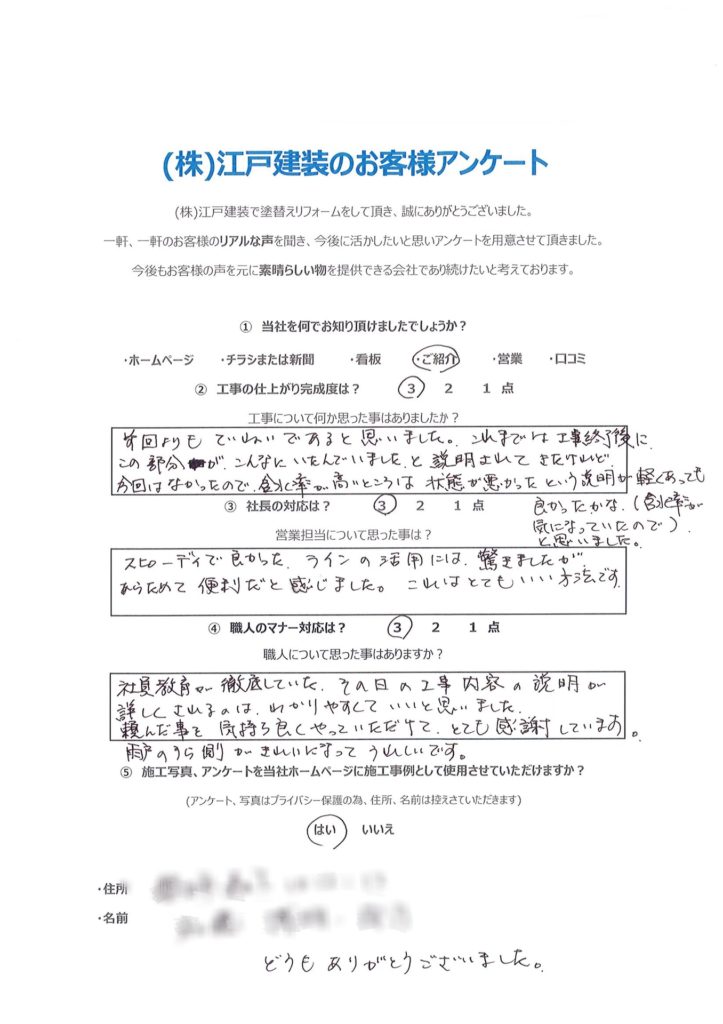 (株)江戸建装のお客様アンケート
(株)江戸建装で塗替えリフォームをして頂き、誠にありがとうございました。
一軒、一軒のお客様のリアルな声を聞き、今後に活かしたいと思いアンケートを用意させて頂きました。
今後もお客様の声を元に素晴らしい物を提供できる会社であり続けたいと考えております。
① 当社を何でお知り頂けましたでしょうか?
・ホームページ ・チラシまたは新聞 ・看板 ・ご紹介 ・営業 ・口コミ
② 工事の仕上がり完成度は? 3 2 1 点
工事について何か思った事はありましたか?
前回よりも ていねいであると思いました。これまでは工事終了後に
この部分が、こんなにいたんでいました と説明されてきたけれど
今回はなかったので、含水率が高いところは 状態が悪かった という説明が軽くあっても
良かったかな、(含水率が
気になっていたので)
と思いました。
③ 社長の対応は? 3 2 1 点
営業担当について思った事は?
スピーディで良かった、ラインの活用には、驚きましたが
あらためて 便利だと感じました。 これはとてもいい方法です
④ 職人のマナー対応は? 3 2 1 点
職人について思った事はありますか?
社員教育が徹底していた、その日の工事内容の説明が
詳しくされるのは、わかりやすくていいと思いました。
頼んだ事を気持ち良くやっていただけて、とても感謝しています。
雨戸のうら側がきれいになってうれしいです。
⑤ 施工写真、アンケートを当社ホームページに施工事例として使用させていただけますか?
(アンケート、写真はプライバシー保護の為、住所、名前は控えさせていただきます)
はい いいえ
・住所
・名前
どうもありがとうございました。